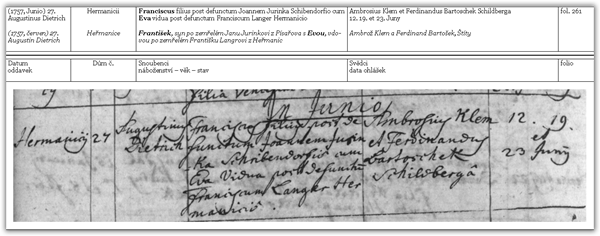 (1757, Junio) 27.
Augustinus Dietrich
Hermanicii
Franciscus filius post defunctum Joannem Jurinka Schibendorfio cum
Eva vidua post defunctum Franciscum Langer Hermanicio
Ambrosius Klem et Ferdinandus Bartoschek Schildberga
12. 19. et 23. Juny
fol. 261
(1757, červen) 27.
Augustin Dietrich
Heřmanice
František, syn po zemřelém Janu Jurinkovi z Písařova s Evou, vdo-
vou po zemřelém Františku Langrovi z Heřmanic
Ambrož Klem a Ferdinand Bartošek, Štíty
Datum
oddavek
Dům č.
Snoubenci
náboženství – věk – stav
Svědci
data ohlášek
folio
Filia
Junio
Hermanicij 27 Augustinus Franciscus filius post de Ambrosius Klem 12. 19.
Dietrich functum Joannem Jurin et Ferdinandus et
ka Schibendorfio cum Bartoschek 23 Junij
Eva Vidua post defunctum Schildberga
Franciscum Langer Her
manicio.